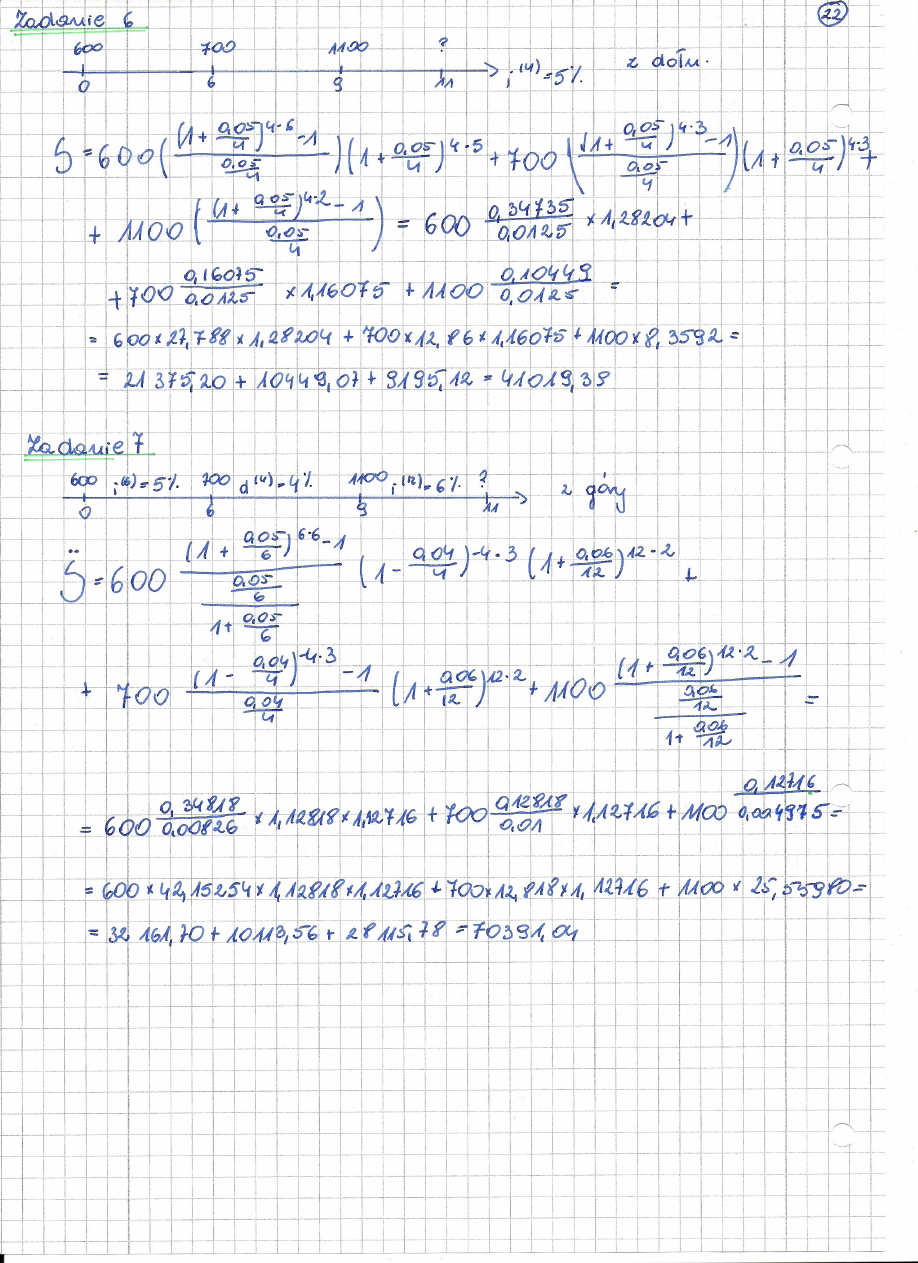 Zadanie 6 22
600 700 1100 ?
0 6 9 11 i^(4)=5% z dołu.
S = 600 ( ((1+0,05/4)^4·6 -1) / (0,05/4) ) (1+0,05/4)^4·5 + 700 ( ((1+0,05/4)^4·3 -1) / (0,05/4) ) (1+0,05/4)^4·3 +
+ 1100 ( ((1+0,05/4)^4·2 -1) / (0,05/4) ) = 600 0,34735/0,0125 × 1,28204 +
+700 0,16075/0,0125 × 1,16075 + 1100 0,10449/0,0125 =
= 600 × 27,788 × 1,28204 + 700 × 12,86 × 1,16075 + 1100 × 8,3592 =
= 21 375,20 + 10449,07 + 9195,12 = 41019,39
Zadanie 7
600 i^(6)=5% 700 d^(4)=4% 1100 i^(12)=6% ?
0 6 9 11 z góry
S̈ = 600 ((1+0,05/6)^6·6 -1) / ((0,05/6) / (1+0,05/6)) (1-0,04/4)^-4·3 (1+0,06/12)^12·2 +
+ 700 ((1-0,04/4)^-4·3 -1) / (0,04/4) (1+0,06/12)^12·2 + 1100 ((1+0,06/12)^12·2 -1) / ((0,06/12) / (1+0,06/12)) =
= 600 0,34818/0,00826 × 1,12818 × 1,12716 + 700 0,12818/0,01 × 1,12716 + 1100 0,12716/0,004975 =
= 600 × 42,15254 × 1,12818 × 1,12716 + 700 × 12,818 × 1,12716 + 1100 × 25,55980 =
= 32 161,70 + 10113,56 + 28115,78 = 70391,04